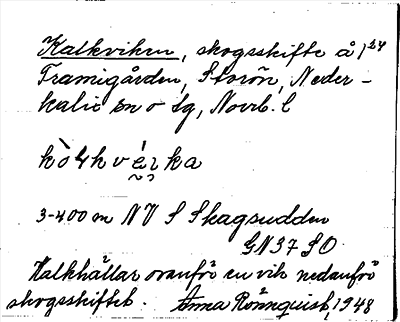 Kalkviken, skogsskifte å 1 24
Framigården, Storön, Neder-
kalix sn o tg, Norrb. l
kò4kvérka
3-400 m NV S Skagsudden
GN37 SO
Kalkhällar ovanför en vik nedanför
skogsskiftet. Anna Rönnquist, 1948